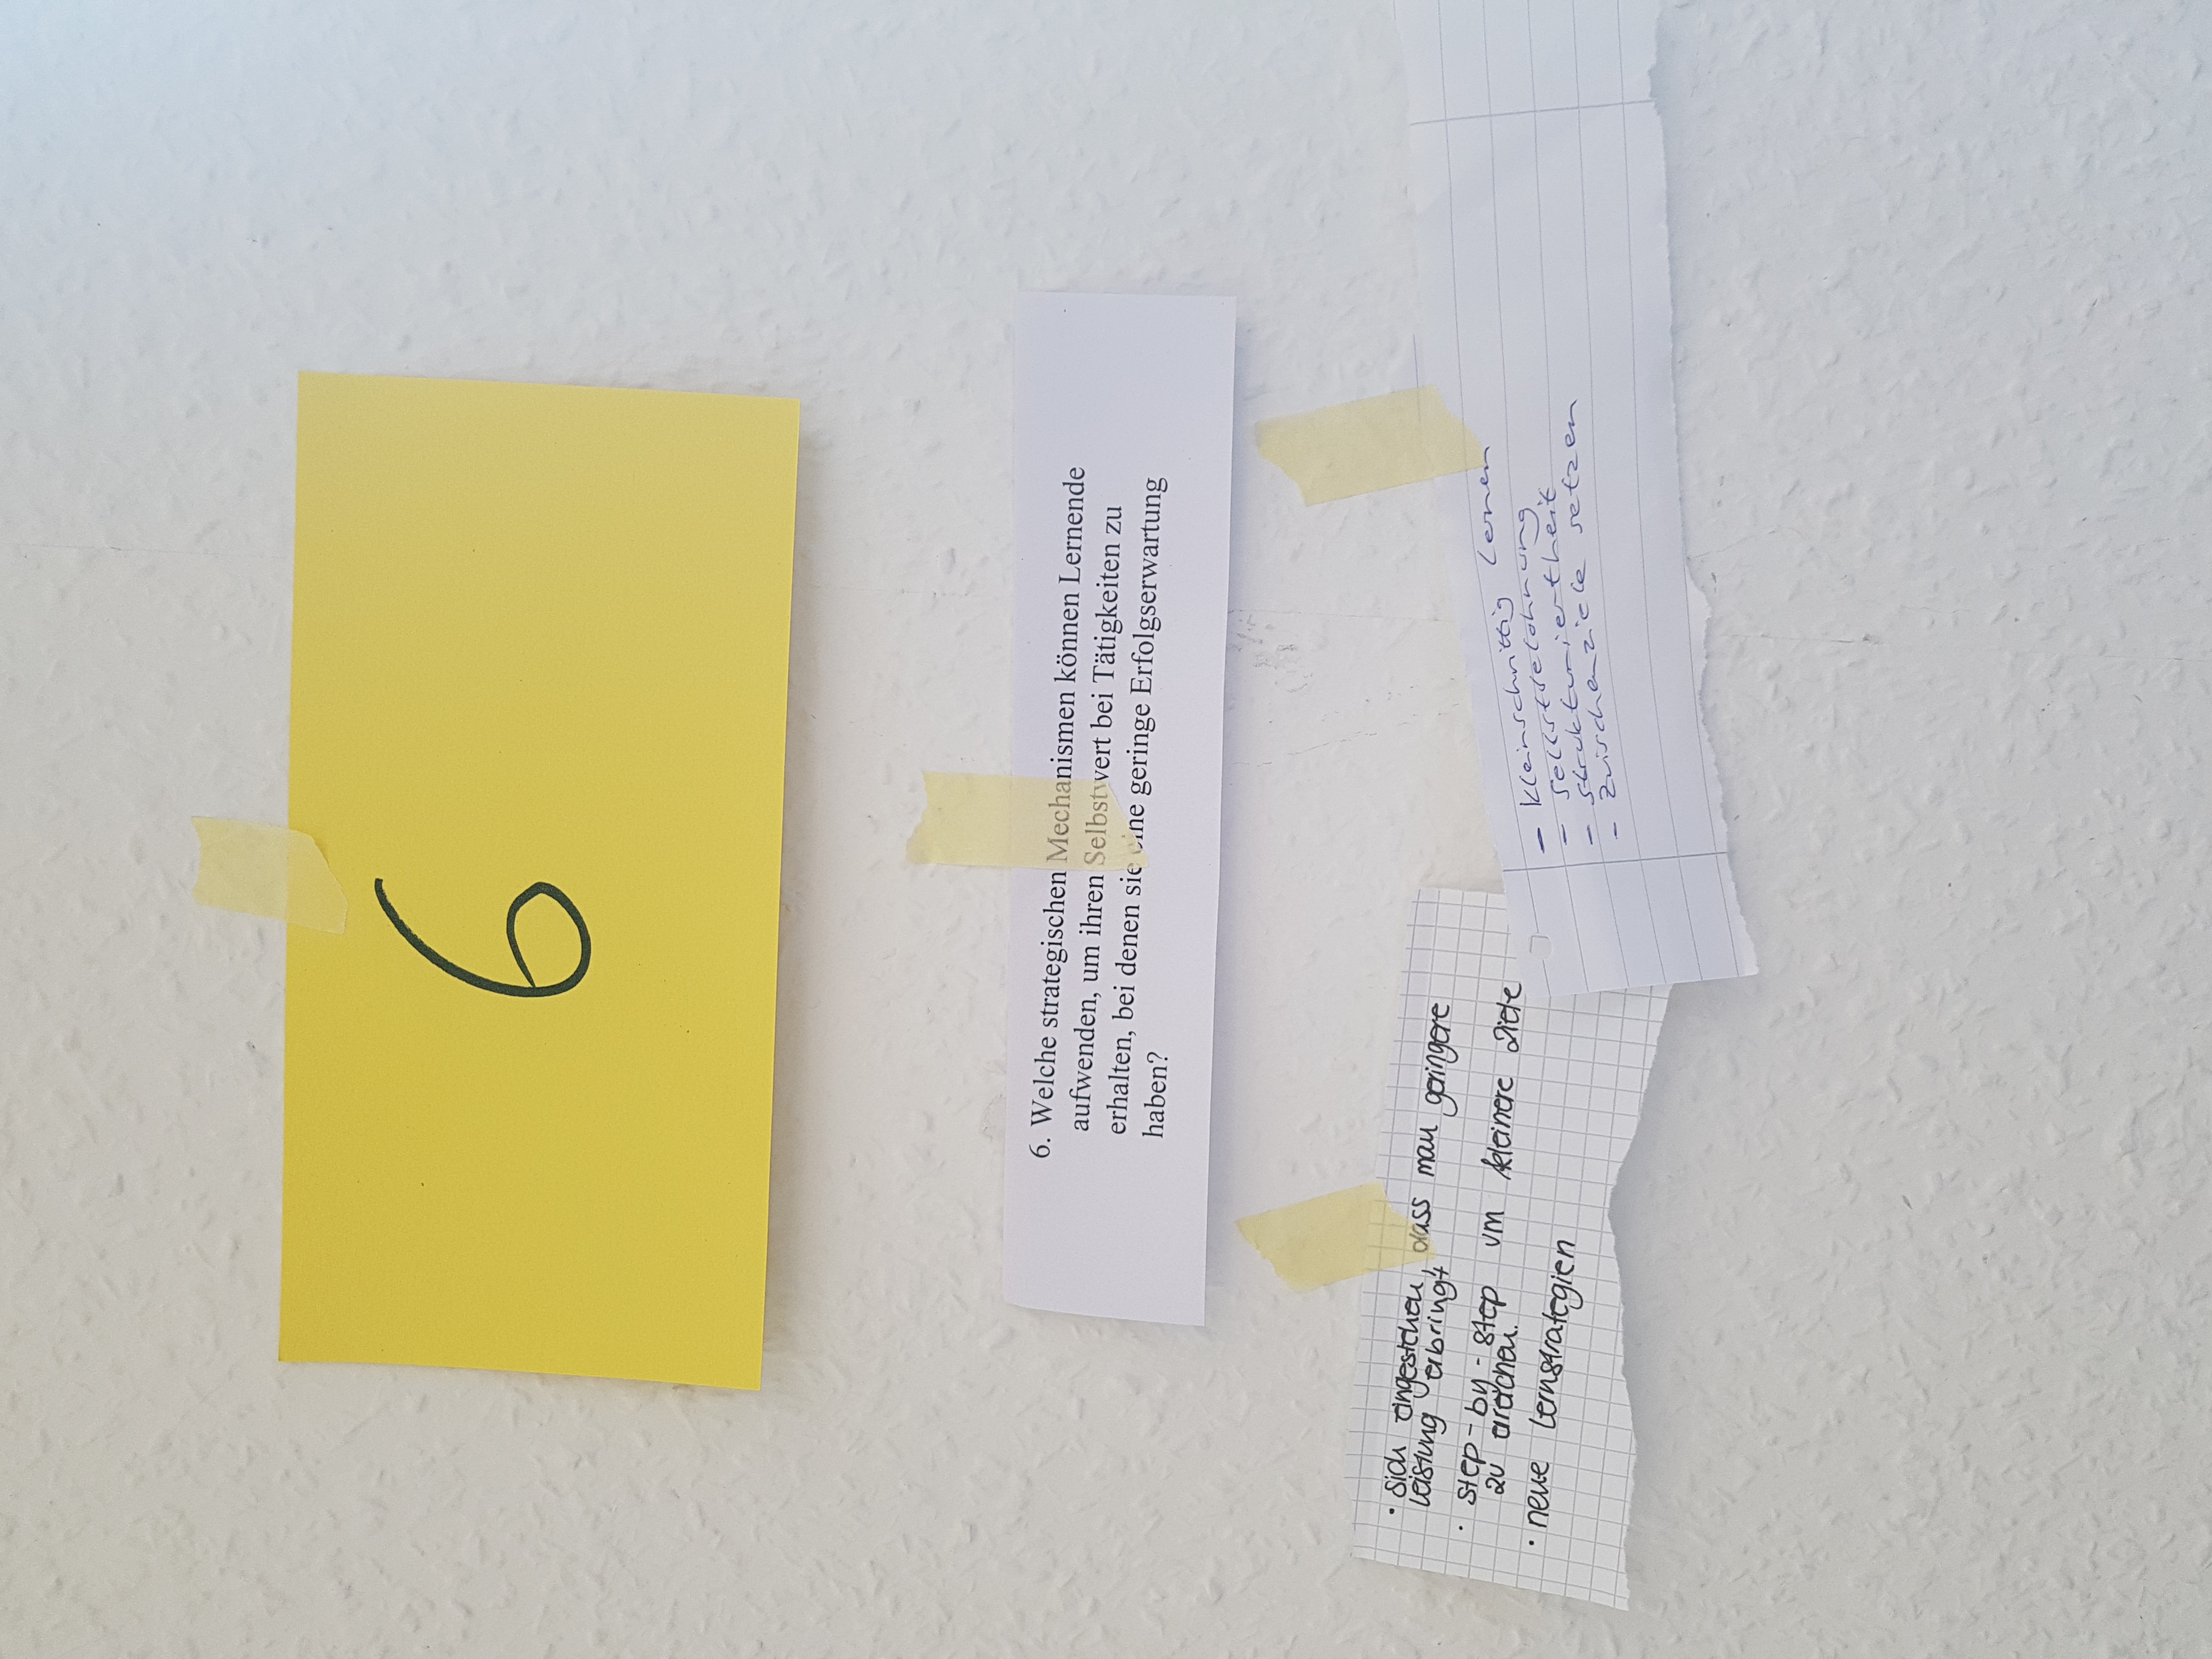 6
6. Welche strategischen Mechanismen können Lernende
aufwenden, um ihren Selbstwert bei Tätigkeiten zu
erhalten, bei denen sie eine geringe Erfolgserwartung
haben?
• sich eingestehen, dass man geringere
Leistung erbringt
• step-by-step um kleinere Ziele
zu erreichen.
• neue Lernstrategien
- kleinschrittig lernen
- Selbstbelohnung
- Strukturiertheit
- Zwischenziele setzen